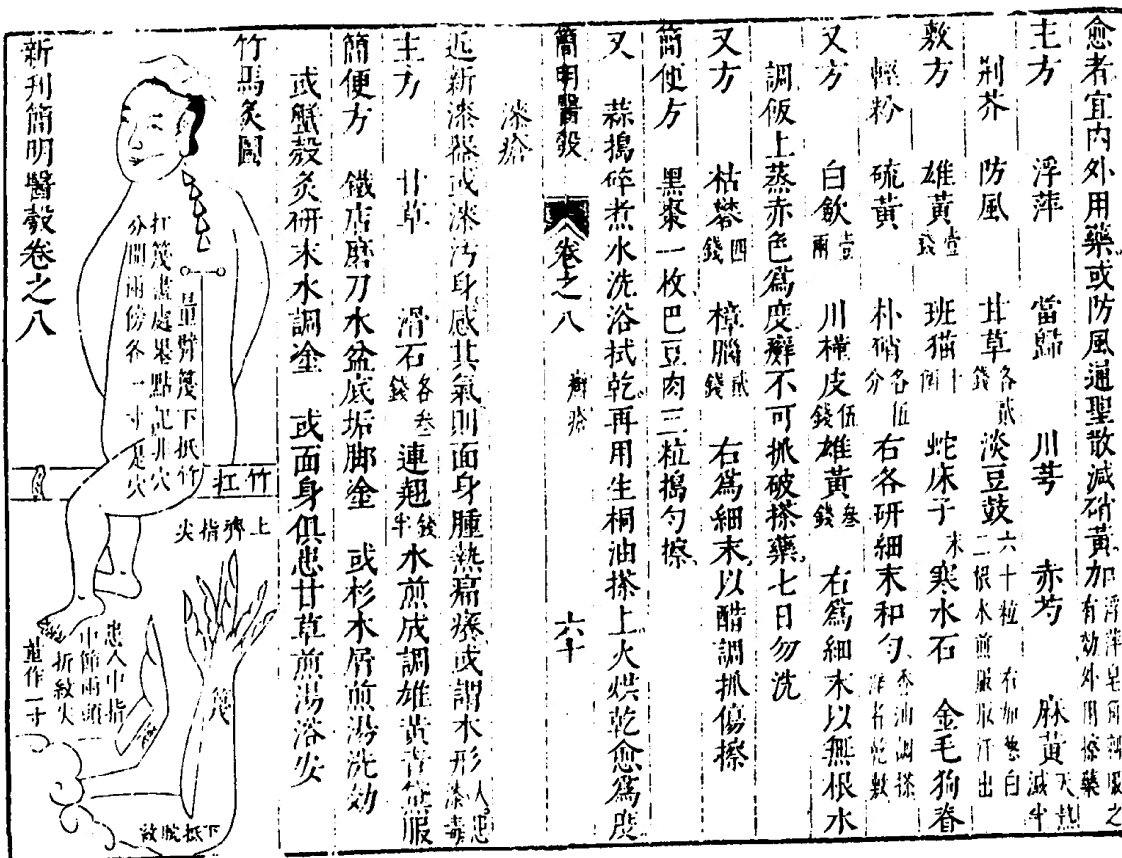 愈者宜内外用藥或防風通聖散減硝黃加浮萍皂角刺服之有効外用擦藥
主方　浮萍　當歸　川芎　赤芍　麻黃天熱減半
荆芥　防風　甘草各貳錢　淡豆豉六十粒　右加葱白二根水煎服取汗出
敷方　雄黃壹錢　班猫十個　蛇床子末　寒水石　金毛狗脊
輕粉　硫黃　朴硝各伍分　右各研細末和勻香油調搽濕者乾敷
又方　白飲壹兩　川槿皮伍錢　雄黃叁錢　右爲細末以無根水
調飯上蒸赤色爲度癬不可抓破搽藥七日勿洗
又方　枯礬四錢　樟腦貳錢　右爲細末以醋調抓傷擦
簡便方　黑棗一枚巴豆肉三粒搗勻擦
又　蒜搗碎煮水洗浴拭乾再用生桐油搽上火烘乾愈爲度
簡明醫彀　卷之八　癬瘡　六十
漆瘡
近新漆器或漆汚身感其氣則面身腫熱痛癢或謂木形人忌漆毒
主方　甘草　滑石各叁錢　連翹錢半　水煎成調雄黃青黛服
簡便方　鐵店磨刀水盆底垢脚塗　或杉木屑煎湯洗効
或蟹殼炙研末水調塗　或面身俱患甘草煎湯浴安
竹馬灸圖
量臂篾下抵竹
扛篾盡處墨點記非穴
分開兩傍各一寸是穴
竹扛
上臍指尖
篾
患人中指
中節兩頭
折紋尖
量作一寸
下抵腕紋
新刋簡明醫彀卷之八